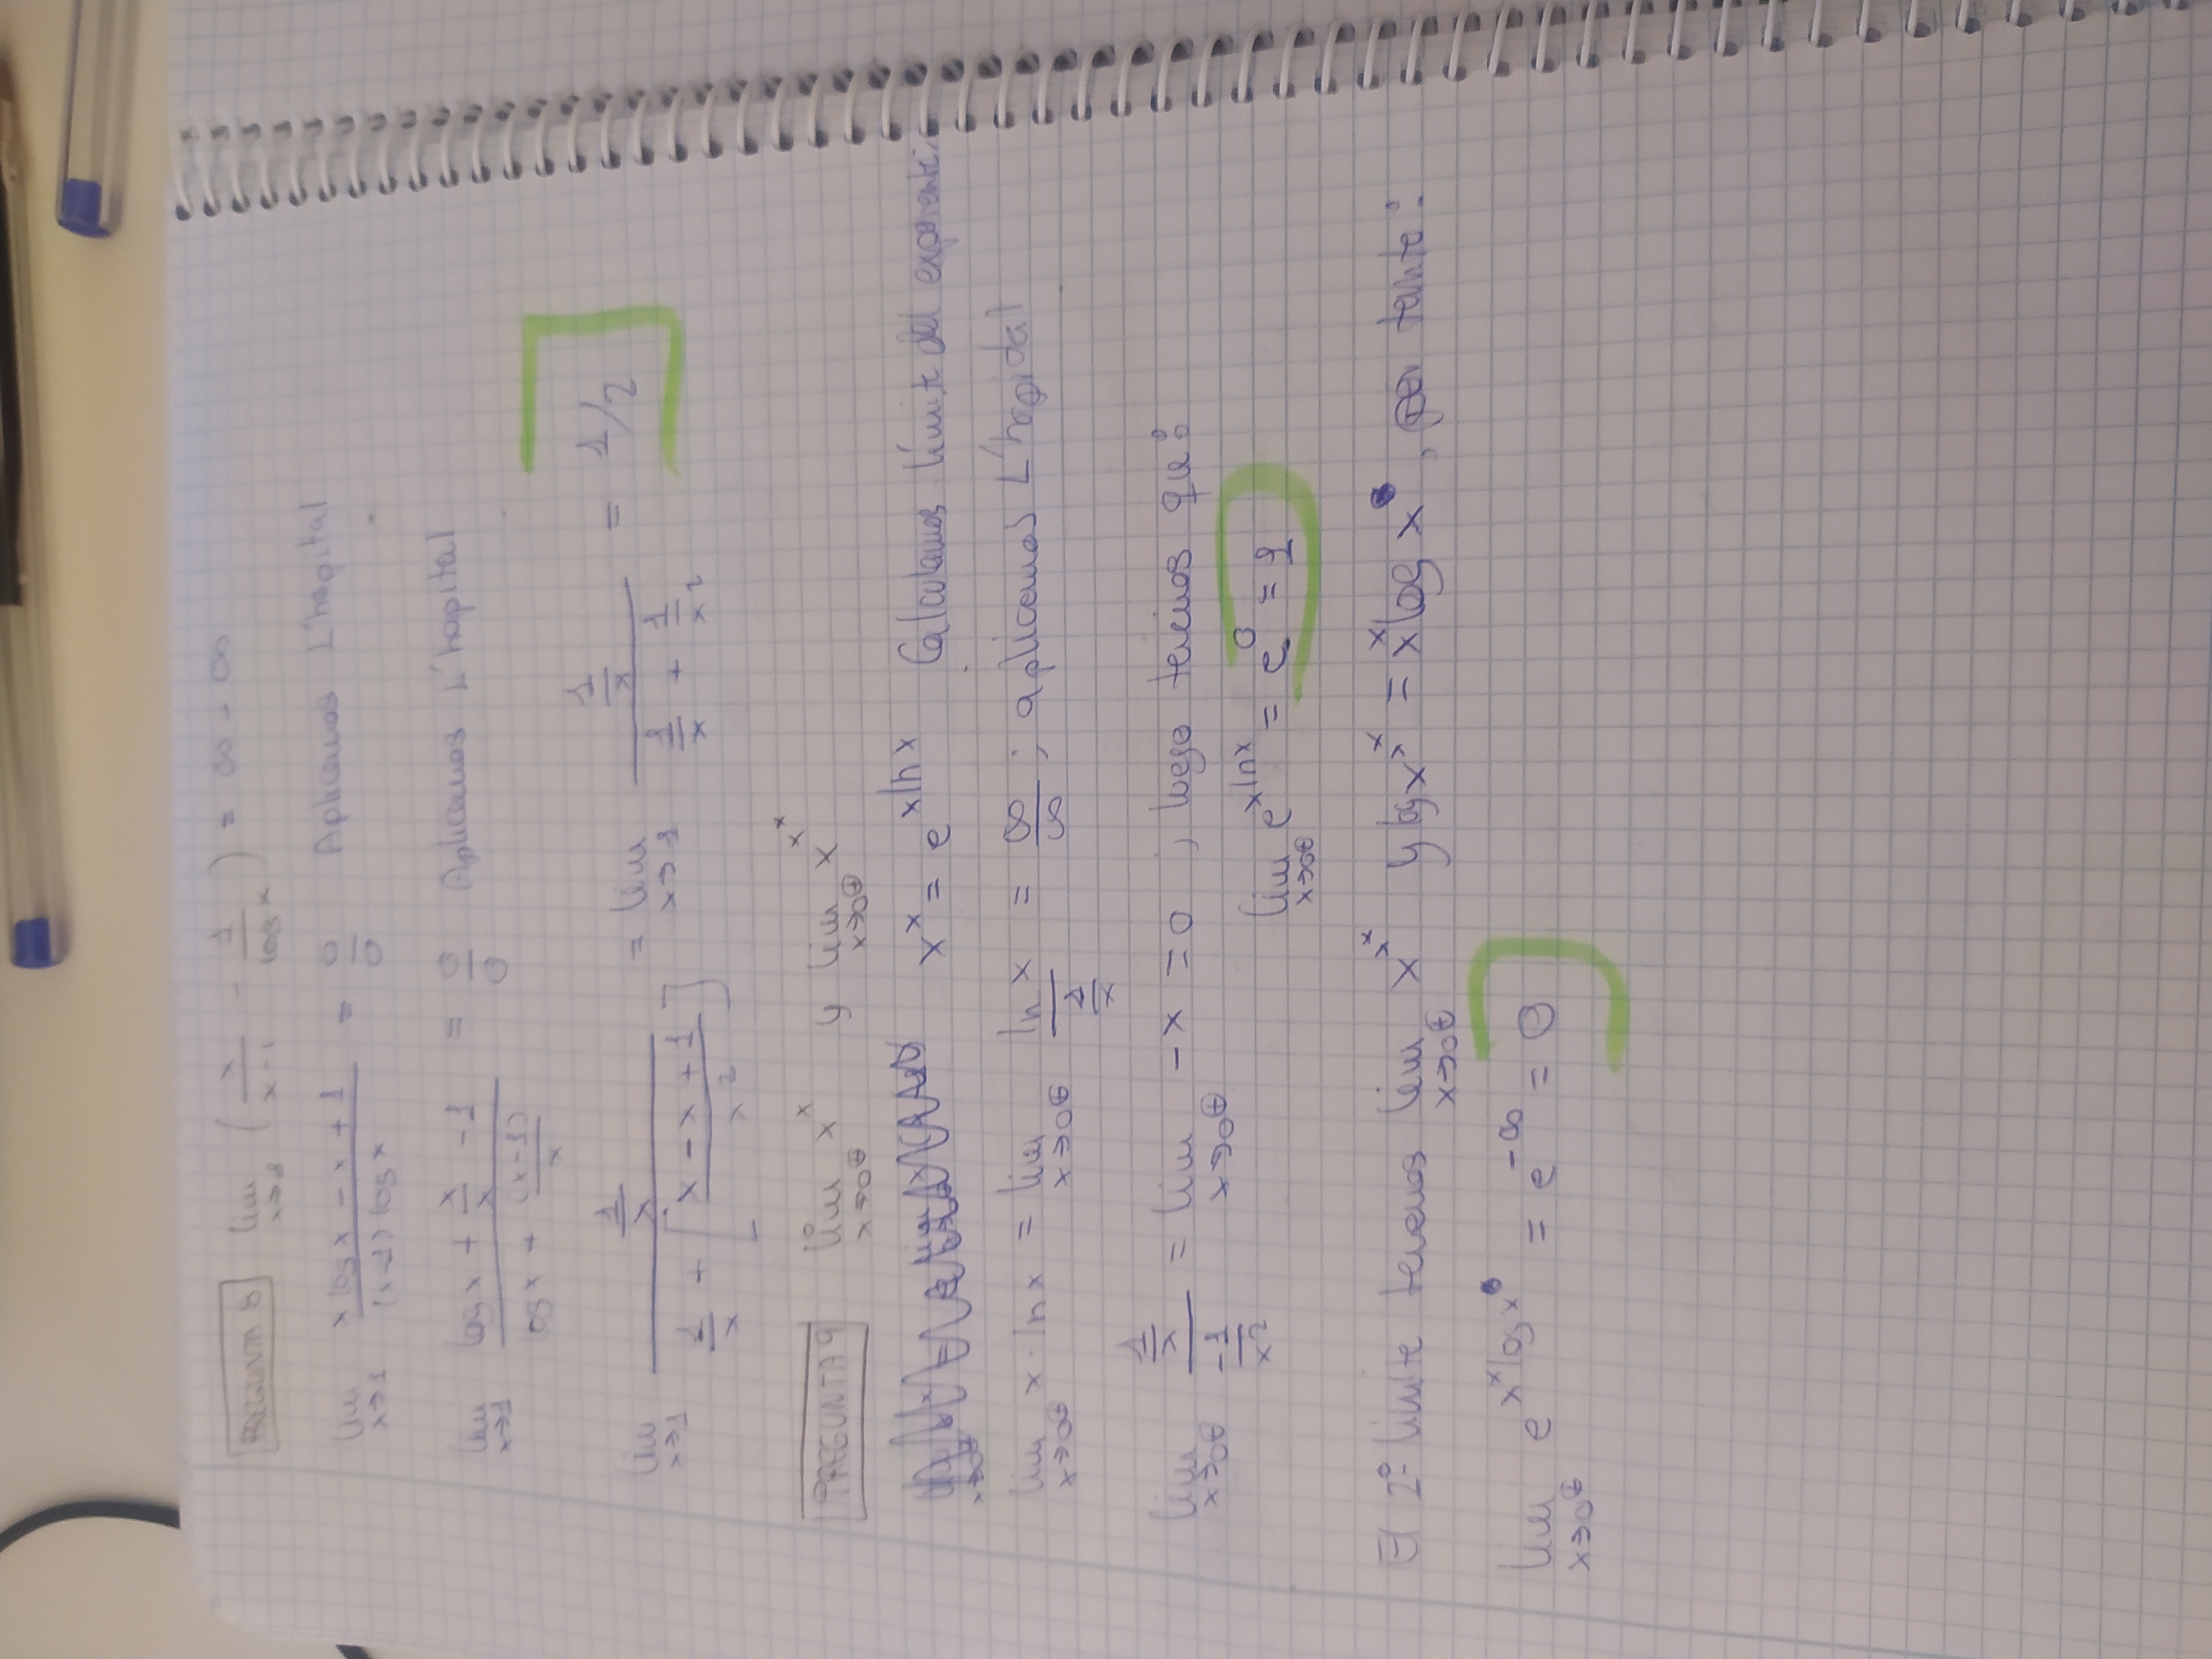 PREGUNTA 8 lim x→1 ( x/(x-1) - 1/log x ) = ∞ - ∞
lim x→1 (x log x - x + 1)/((x-1) log x) = 0/0 Aplicamos L'hopital
lim x→1 (log x + x/x - 1)/(log x + (x-1)/x) = 0/0 Aplicamos L'hopital
lim x→1 (1/x)/(1/x + [(x - x + 1)/x²]) = lim x→1 (1/x)/(1/x + 1/x²) = 1/2
PREGUNTA 9 lim x→0⊕ x^x y lim x→0⊕ x^x^x
x^x = e^(x ln x) Calculamos límite del exponente:
lim x→0⊕ x · ln x = lim x→0⊕ (ln x)/(1/x) = ∞/∞ ; aplicamos L'hopital
lim x→0⊕ (1/x)/(-1/x²) = lim x→0⊕ -x = 0 ; luego tenemos que:
lim x→0⊕ e^(x ln x) = e^0 = 1
El 2º límite tenemos lim x→0⊕ x^x^x y log x^x^x = x^x log x , por tanto:
lim x→0⊕ e^(x^x log x) = e^(-∞) = 0